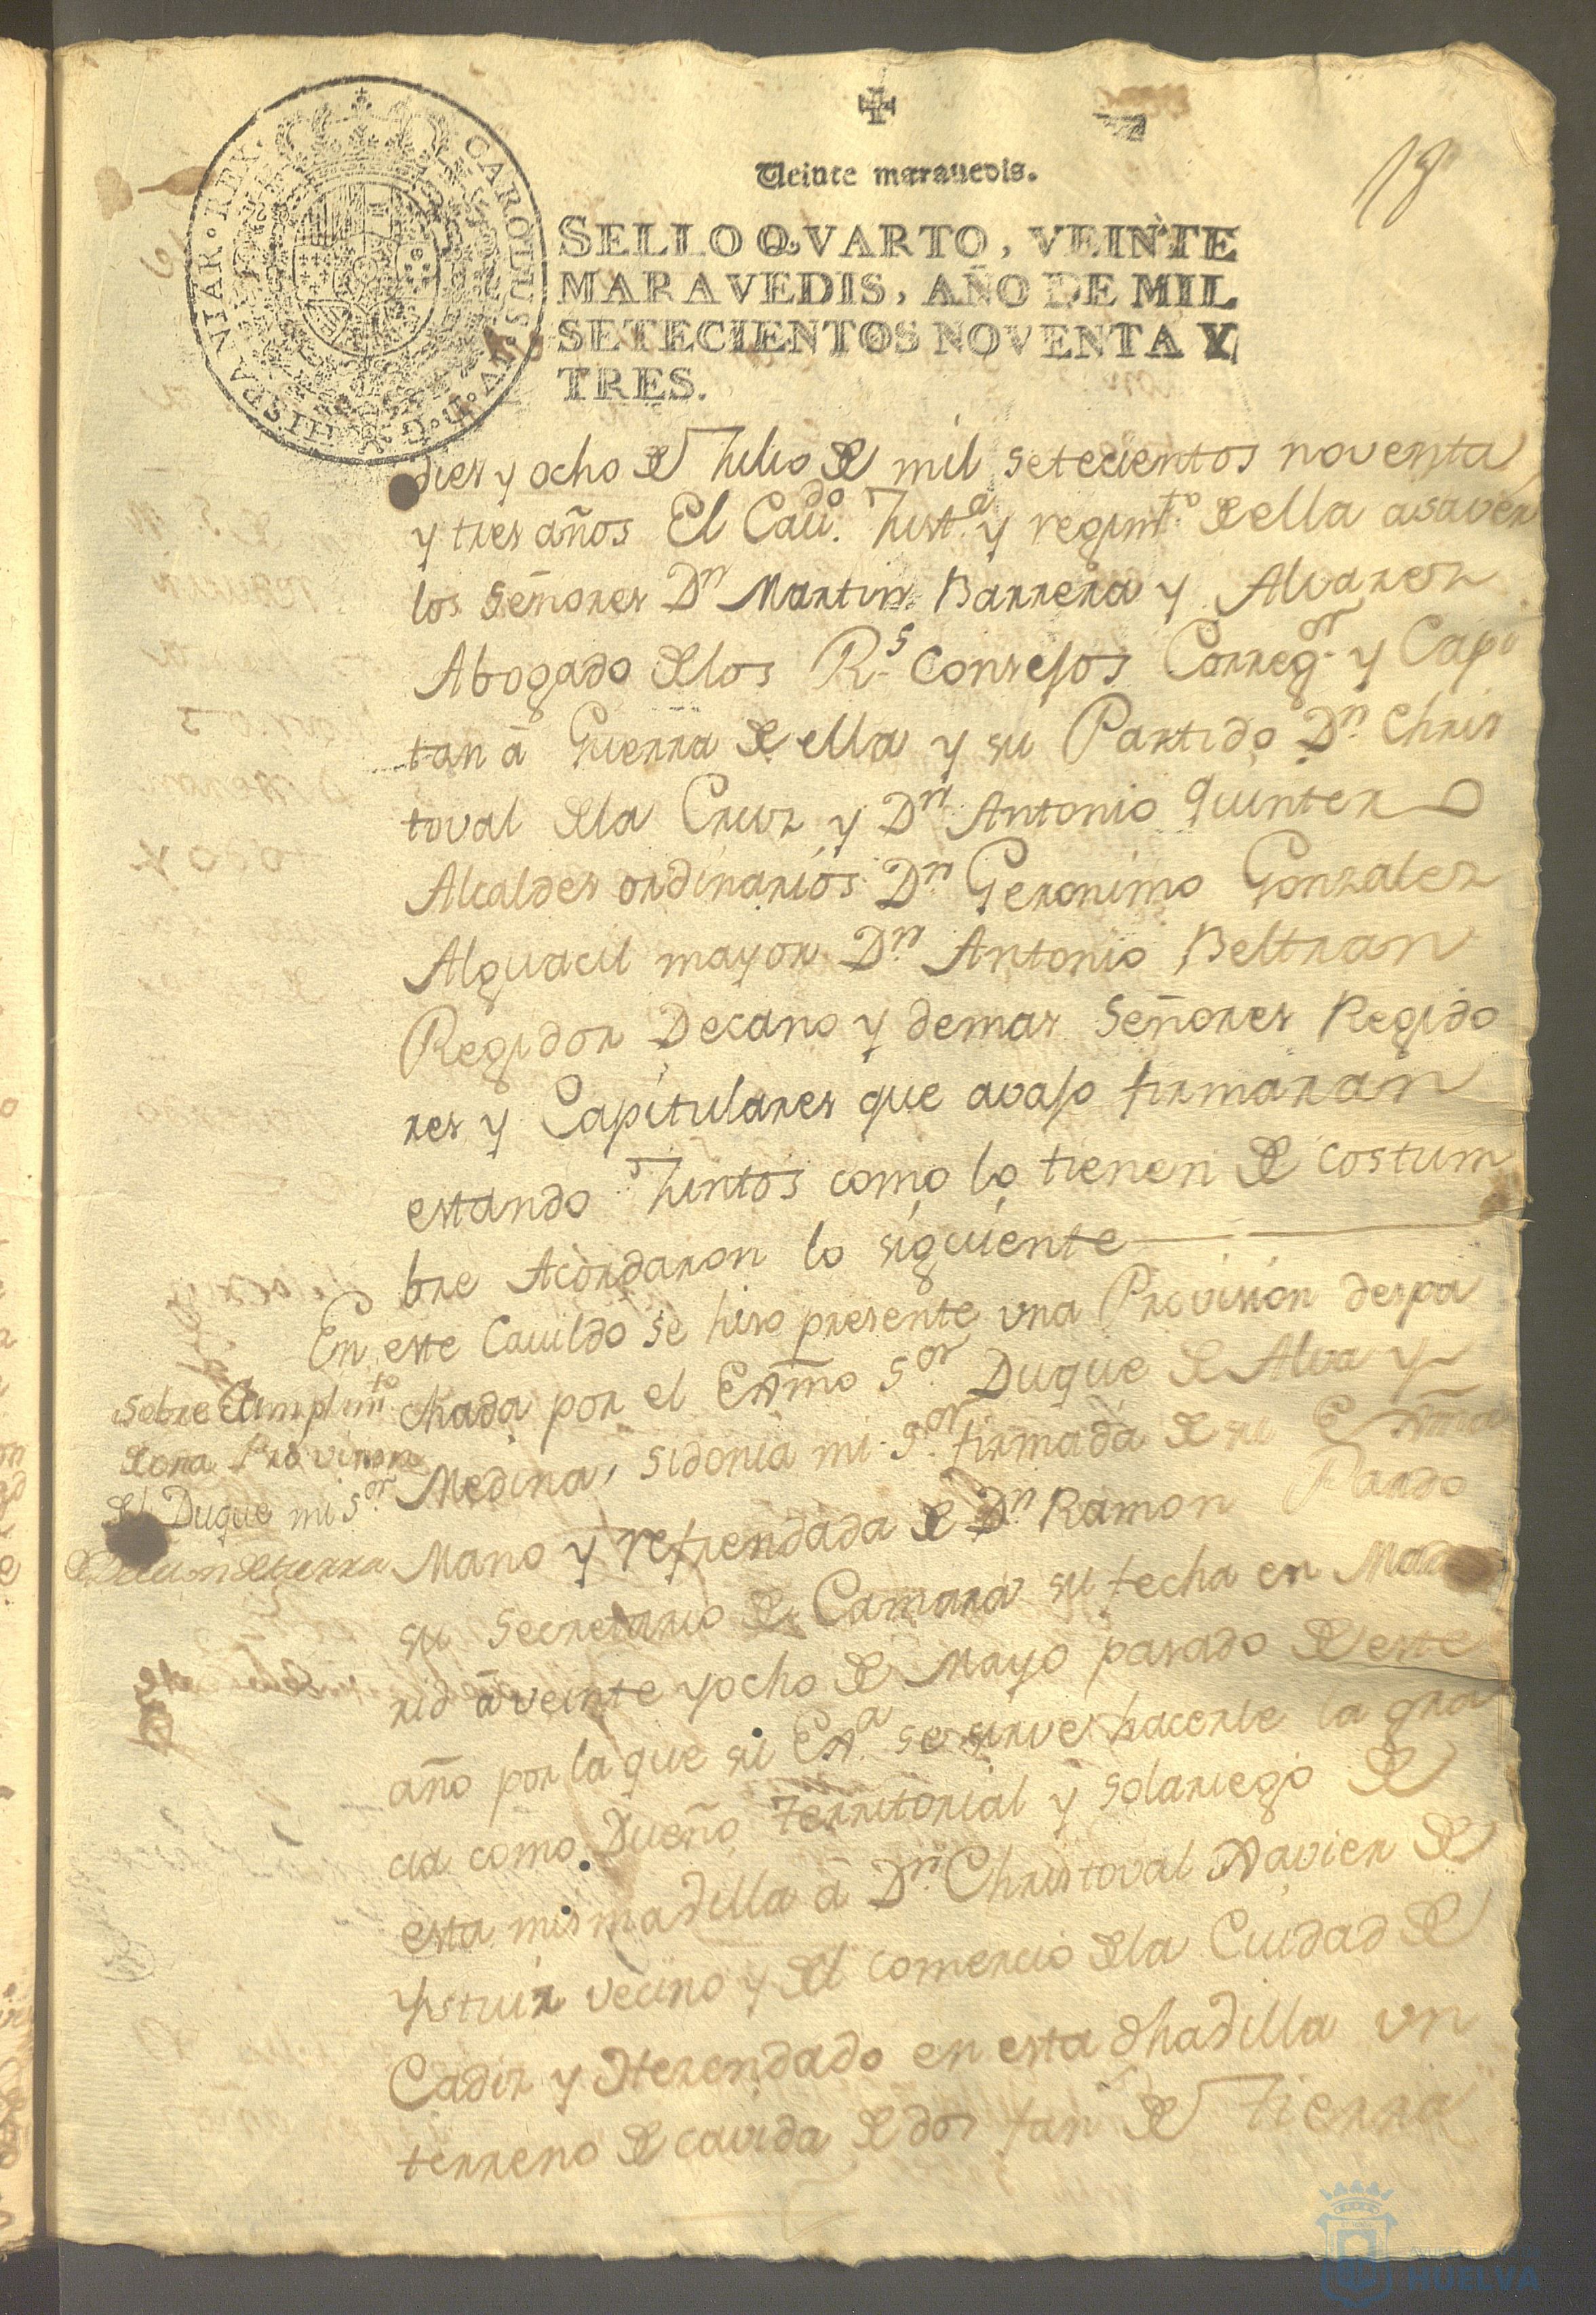 CAROLUS·IV·D·G·HISPANIAR·REX·
Veinte maravedis.
18
SELLO QVARTO, VEINTE
MARAVEDIS, AÑO DE MIL
SETECIENTOS NOVENTA Y
TRES.
dies y ocho de Julio de mil setecientos noventa
y tres años El Cavdo. Justa. y regimto. de ella asaver
los Señores Dn Martin Barrera y Alvarez
Abogado de los Rs. Consejos Correg.or y Capi
tan â Guerra de ella y su Partido Dn Chris
toval de la Cruz y Dn Antonio Quintero
Alcaldes ordinarios Dn Geronimo Gonzalez
Alguacil mayor Dn Antonio Beltran
Regidor Decano y demas Señores Regido
res y Capitulares que avajo firmaran
estando Juntos como lo tienen de costum
bre Acordaron lo siguiente
En este Cavildo se hiso presente una Provision despa
chada por el Exmo Sor. Duque de Alva y
Medina, sidonia mi Sor. firmada de su Exma
Mano y refrendada de Dn Ramon Pardo
su Secretario de Camara su fecha en Mad
rid â veinte y ocho de Mayo pasado de este
año por la que su Exa. se sirve hacerle la gra
cia como Dueño Territorial y solariego de
esta misma villa â Dn. Christoval Xavier de
Ysturiz vecino y del comercio de la Ciudad de
Cadiz y Herendado en esta dha villa un
terreno de cavida de dos fan de Tierra
Sobre Cumplimto.
de una Provision
del Duque mi Sor.
de tierra
AYUNTAMIENTO DE
HUELVA